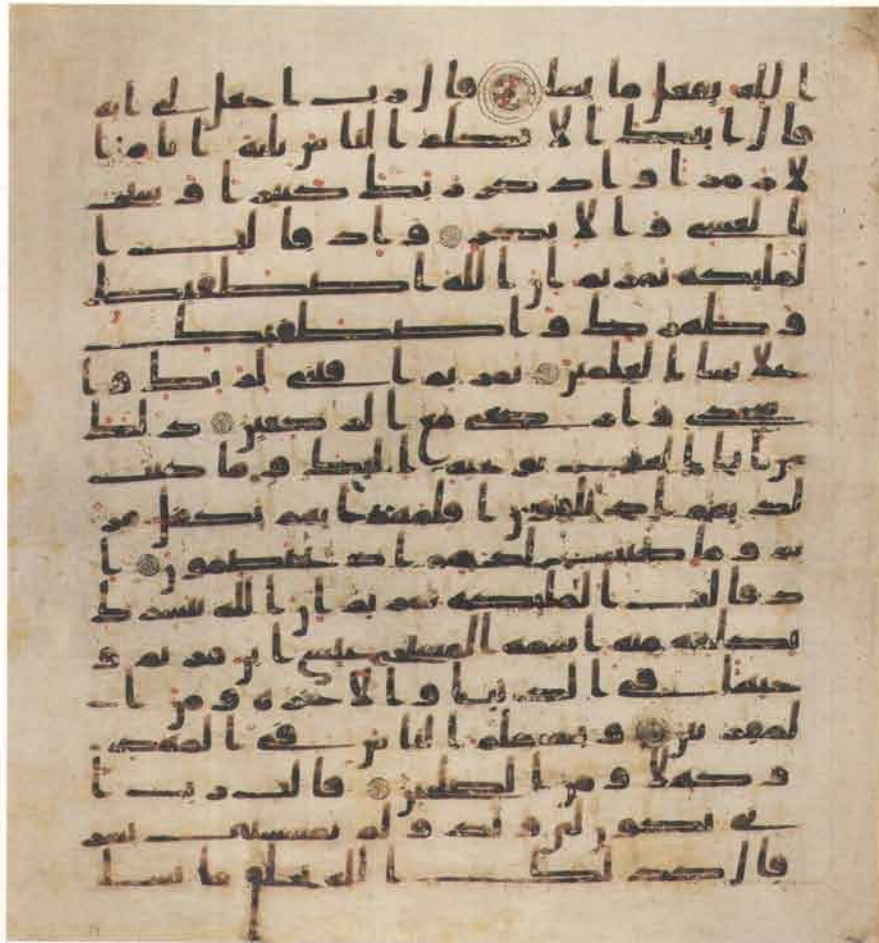 الله يفعل ما يشا قال رب اجعل لي ايه
قال ايتك الا تكلم الناس ثلثة ايام ا
لا رمزا واذكر ربك كثيرا وسبح
بالعشي والابكر واذ قالت ا
لمليكه يمريم ان الله اصطفيك
وطهرك واصطفيك
على نسا العلمين يمريم اقنتي لربك وا
سجدي واركعي مع الركعين ذلك
من انبا الغيب نوحيه اليك وما كنت
لديهم اذ يلقون اقلمهم ايهم يكفل مر
يم وما كنت لديهم اذ يختصمون ا
ذ قالت المليكه يمريم ان الله يبشرك
بكلمه منه اسمه المسيح عيسى ابن مريم و
جيها في الدنيا والاخره ومن ا
لمقربين ويكلم الناس في المهد
وكهلا ومن الصلحين قالت رب ا
نى يكون لي ولد ولم يمسسني بشر
قال كذلك الله يخلق ما يشا